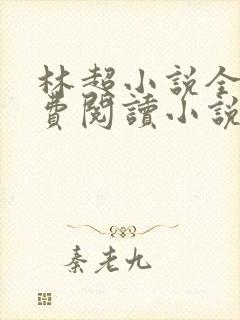 林超小說全
費閱讀小說
秦老九